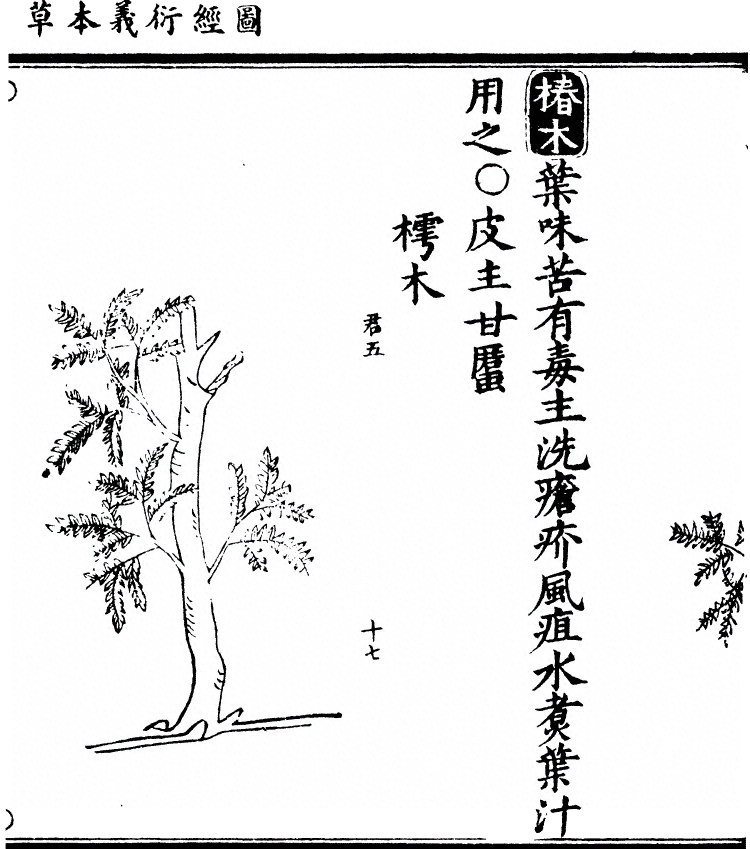 圖經衍義本草
椿木葉味苦有毒主洗瘡疥風疽水煑葉汁
用之〇皮主甘䘌
樗木
君五
十七